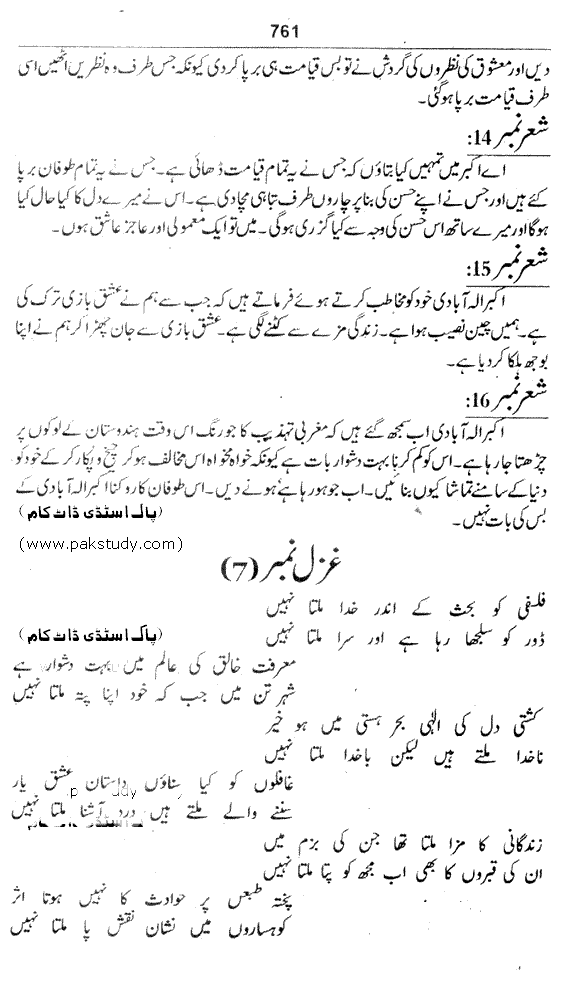 761
دیں اور معشوق کی نظروں کی گردش نے تو بس قیامت ہی برپا کر دی کیونکہ جس طرف وہ نظریں اٹھیں اسی
طرف قیامت برپا ہو گئی۔
شعر نمبر 14:
اے اکبر میں تمہیں کیا بتاؤں کہ جس نے یہ تمام قیامت ڈھائی ہے۔ جس نے یہ تمام طوفان برپا
کئے ہیں اور جس نے اپنے حسن کی بنا پر چاروں طرف تباہی مچا دی ہے۔ اس نے میرے دل کا کیا حال کیا
ہوگا اور میرے ساتھ اس حسن کی وجہ سے کیا گزری ہوگی۔ میں تو ایک معمولی اور عاجز عاشق ہوں۔
شعر نمبر 15:
اکبر الہ آبادی خود کو مخاطب کرتے ہوئے فرماتے ہیں کہ جب سے ہم نے عشق بازی ترک کی
ہے۔ ہمیں چین نصیب ہوا ہے۔ زندگی مزے سے کٹنے لگی ہے۔ عشق بازی سے جان چھڑا کر ہم نے اپنا
بوجھ ہلکا کر دیا ہے۔
شعر نمبر 16:
اکبر الہ آبادی اب سمجھ گئے ہیں کہ مغربی تہذیب کا جو رنگ اس وقت ہندوستان کے لوگوں پر
چڑھتا جا رہا ہے۔ اس کو کم کرنا بہت دشوار بات ہے کیونکہ خواہ مخواہ اس مخالف ہو کر چیخ و پکار کر کے خود کو
دنیا کے سامنے تماشا کیوں بنائیں۔ اب جو ہو رہا ہے ہونے دیں۔ اس طوفان کا روکنا اکبر الہ آبادی کے
بس کی بات نہیں۔
پاک اسٹڈی ڈاٹ کام
(www.pakstudy.com)
غزل نمبر (7)
فلسفی کو بحث کے اندر خدا ملتا نہیں
ڈور کو سلجھا رہا ہے اور سرا ملتا نہیں
پاک اسٹڈی ڈاٹ کام
معرفت خالق کی عالم میں بہت دشوار ہے
شہر تن میں جب کہ خود اپنا پتہ ملتا نہیں
کشتی دل کی الٰہی بحر ہستی میں ہو خیر
ناخدا ملتے ہیں لیکن باخدا ملتا نہیں
غافلوں کو کیا سناؤں داستان عشق یار
سننے والے ملتے ہیں درد آشنا ملتا نہیں
زندگانی کا مزا ملتا تھا جن کی بزم میں
ان کی قبروں کا بھی اب مجھ کو پتا ملتا نہیں
پختہ طبعوں پر حوادث کا نہیں ہوتا اثر
کوہساروں میں نشان نقش پا ملتا نہیں